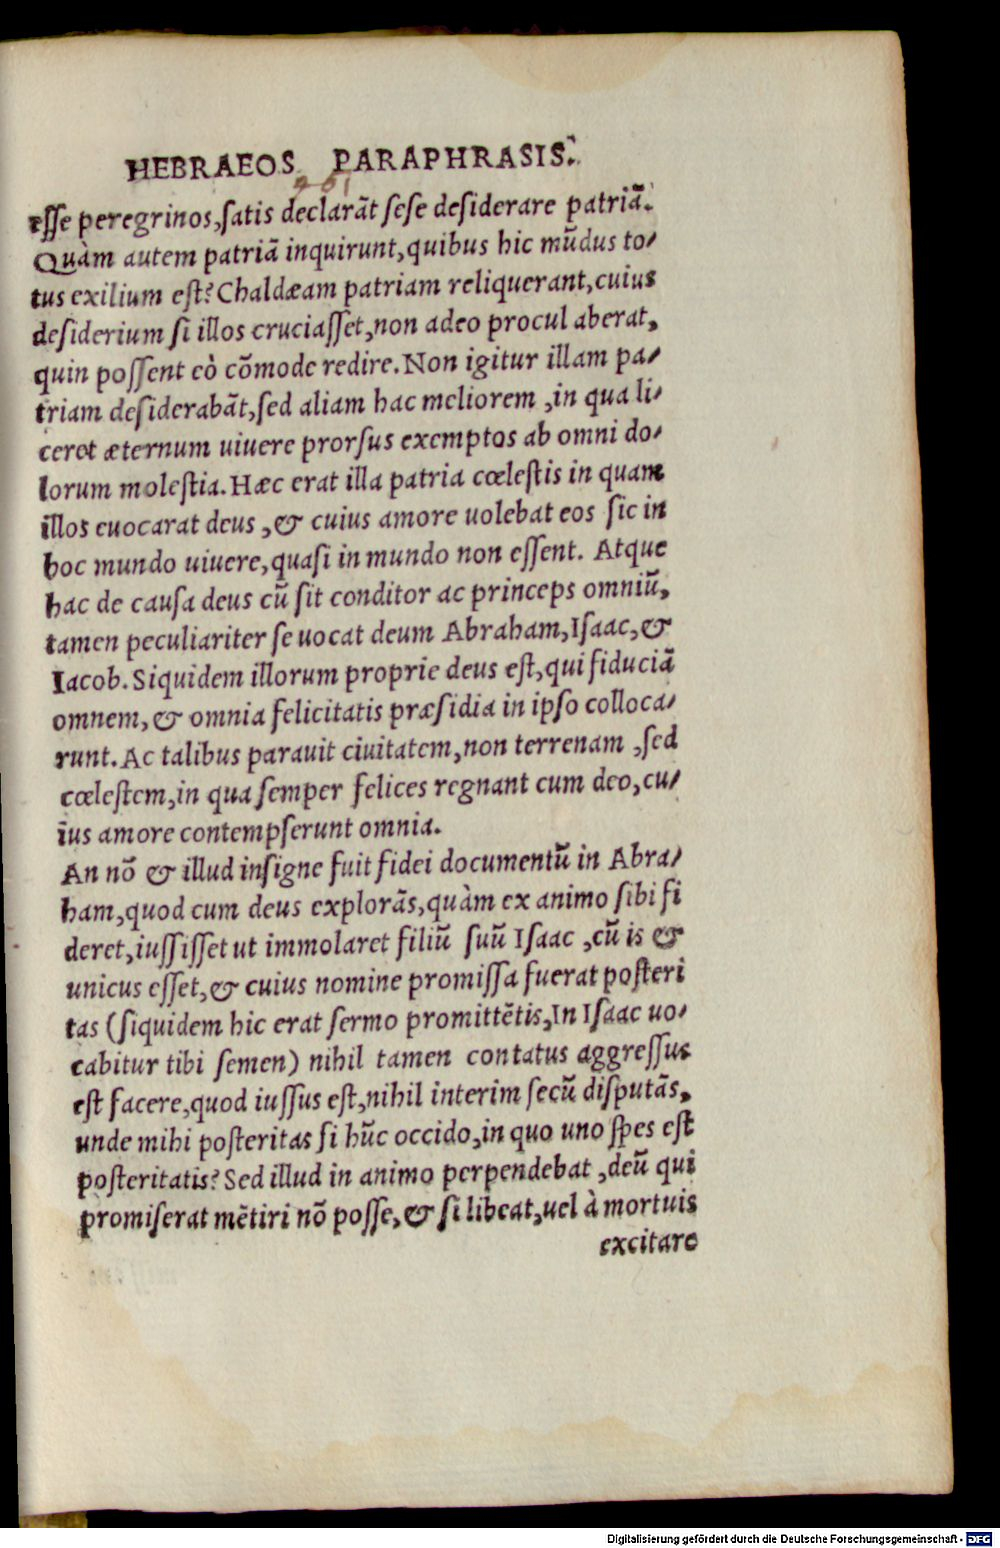 HEBRAEOS PARAPHRASIS.
201
esse peregrinos, satis declarāt sese desiderare patriā.
Quàm autem patriā inquirunt, quibus hic mūdus to-
tus exilium est? Chaldæam patriam reliquerant, cuius
desiderium si illos cruciasset, non adeo procul aberat,
quin possent eò cōmode redire. Non igitur illam pa-
triam desiderabāt, sed aliam hac meliorem, in qua li-
ceret æternum uiuere prorsus exemptos ab omni do-
lorum molestia. Hæc erat illa patria cœlestis in quam
illos euocarat deus, & cuius amore uolebat eos sic in
hoc mundo uiuere, quasi in mundo non essent. Atque
hac de causa deus cū sit conditor ac princeps omniū,
tamen peculiariter se uocat deum Abraham, Isaac, &
Iacob. Siquidem illorum proprie deus est, qui fiduciā
omnem, & omnia felicitatis præsidia in ipso colloca-
runt. Ac talibus parauit ciuitatem, non terrenam, sed
cœlestem, in qua semper felices regnant cum deo, cu-
ius amore contempserunt omnia.
An nō & illud insigne fuit fidei documentū in Abra-
ham, quod cum deus explorās, quàm ex animo sibi fi
deret, iussisset ut immolaret filiū suū Isaac, cū is &
unicus esset, & cuius nomine promissa fuerat posteri
tas (siquidem hic erat sermo promittētis, In Isaac uo-
cabitur tibi semen) nihil tamen contatus aggressus
est facere, quod iussus est, nihil interim secū disputās,
unde mihi posteritas si hūc occido, in quo uno spes est
posteritatis? Sed illud in animo perpendebat, deū qui
promiserat mētiri nō posse, & si libeat, uel à mortuis
excitare
Digitalisierung gefördert durch die Deutsche Forschungsgemeinschaft - DFG